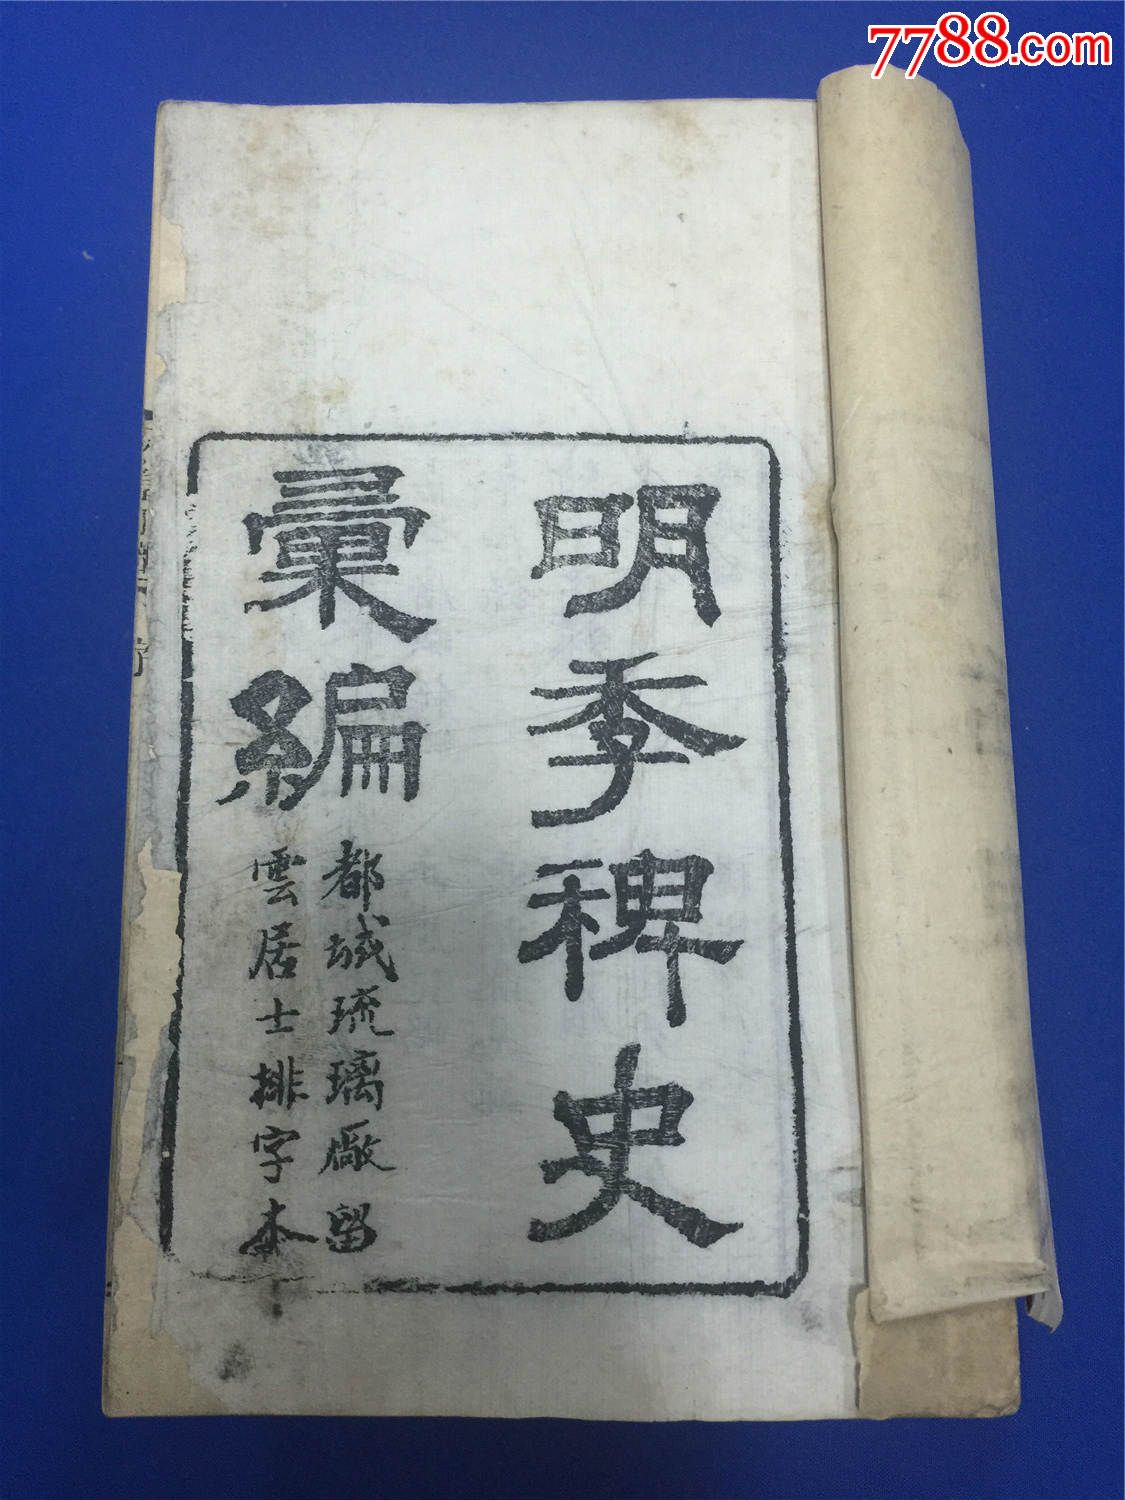 7788.com
明季稗史
彙編
都城琉璃廠留
雲居士排字本